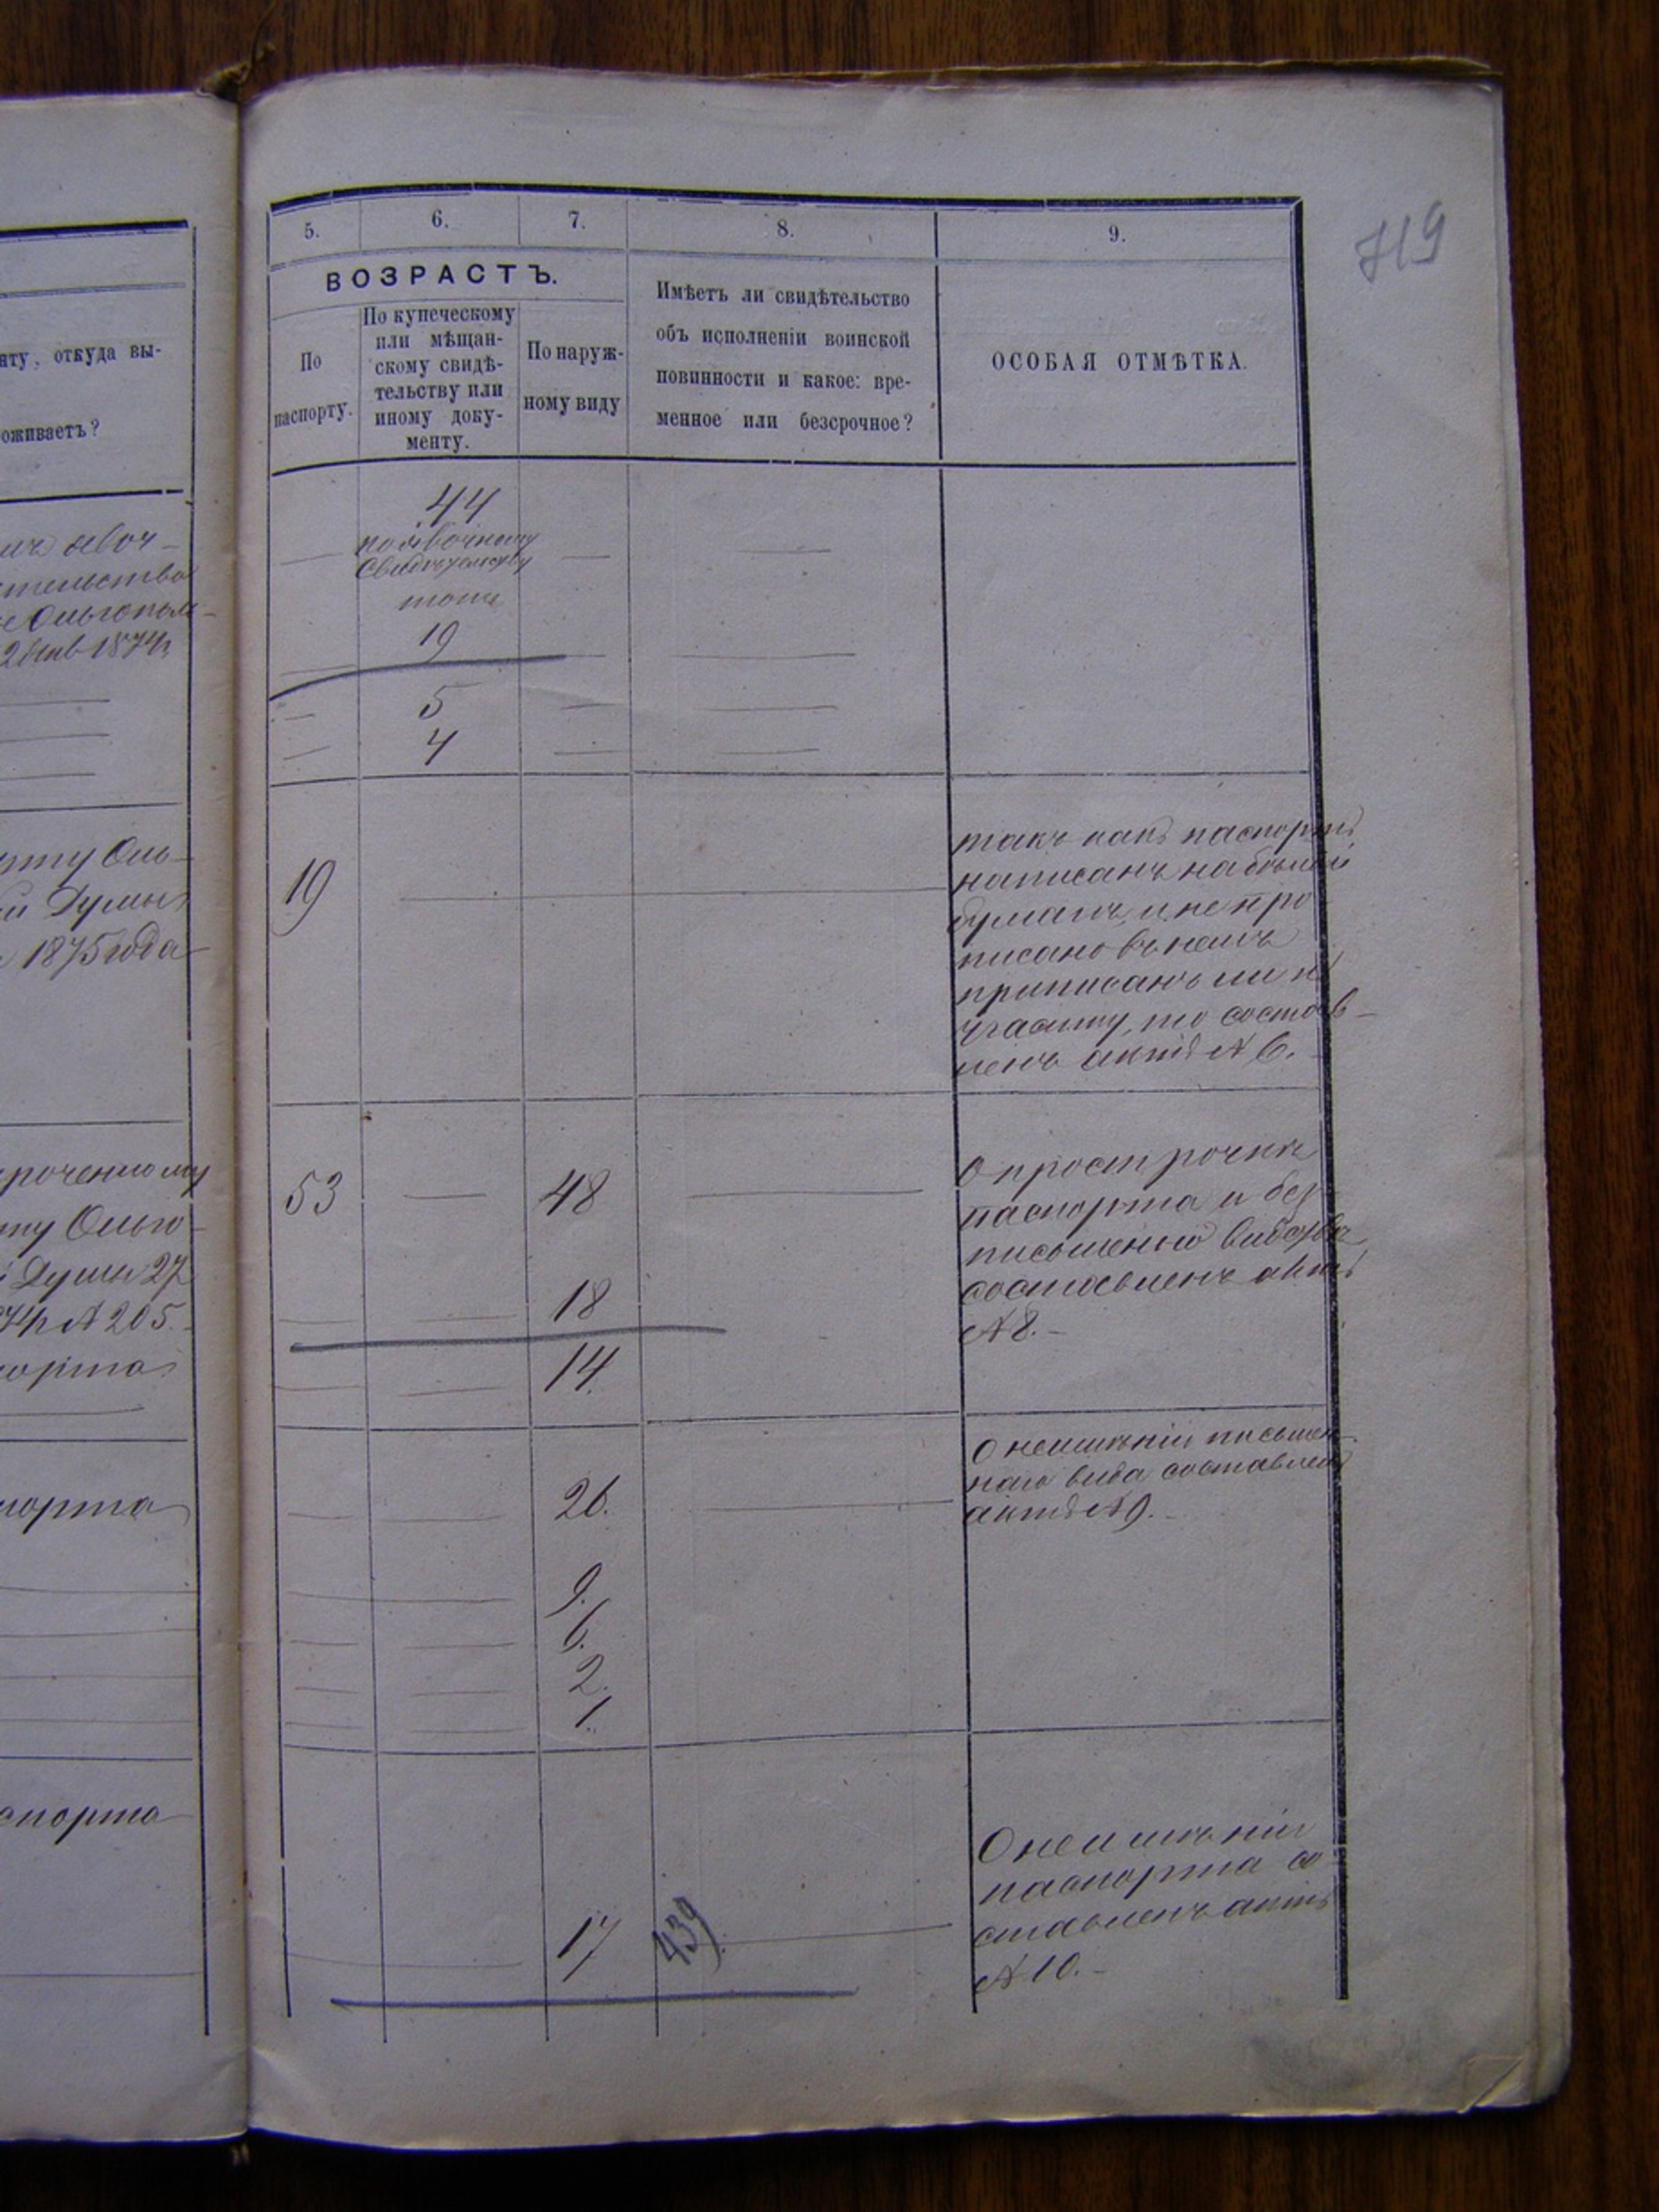 719
5. 6. 7. 8. 9.
ВОЗРАСТЪ.
По
паспорту.
По купеческому
или мѣщан-
скому свидѣ-
тельству или
иному доку-
менту.
По наруж-
ному виду
Имѣетъ ли свидѣтельство
объ исполненіи воинской
повинности и какое: вре-
менное или безсрочное?
ОСОБАЯ ОТМѢТКА.
нту, откуда вы-
оживаетъ?
44
свидѣтельству
тоже
19
5
4
1874
19
такъ какъ паспортъ
написанъ на бѣлой
бумагѣ и не про
писано въ немъ
приписанъ ли къ
участку, то состав-
ленъ актъ № 6.
рту Оль-
й Думы
1875 года
53
48
18
14.
О прострочкѣ
паспорта и без
составленъ актъ
№ 8.-
роченному
ту Ольго-
Думы 27
№ 205.
порта
26.
9.
6.
2.
1.
О неимѣніи письмен-
наго вида составленъ
актъ № 9.-
порта
17
439
О неимѣніи
паспорта со
ставленъ актъ
№ 10.-
спорта